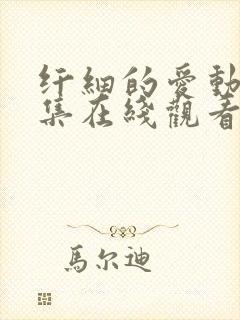 纤細的愛動
集在綫觀看
馬尔迪